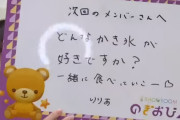 次回のメンバーさんへ
どんなかき氷が
好きですか?
一緒に食べにいこー♡
りりあ
のぎおび